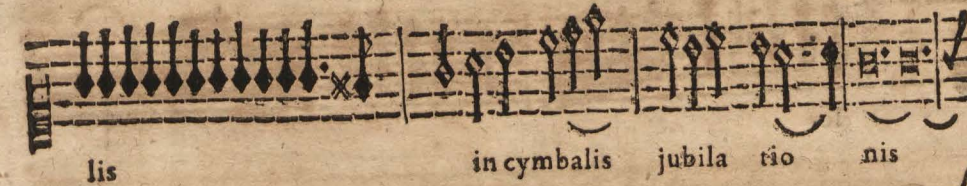 lis in cymbalis jubila tio nis